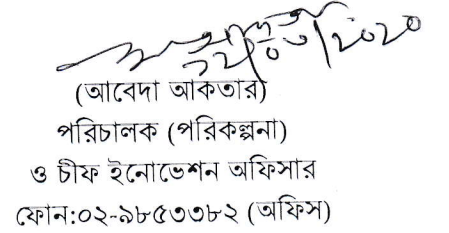 (আবেদা আকতার)
পরিচালক (পরিকল্পনা)
ও চীফ ইনোভেশন অফিসার
ফোন:০২-৯৮৫৩৩৮২ (অফিস)